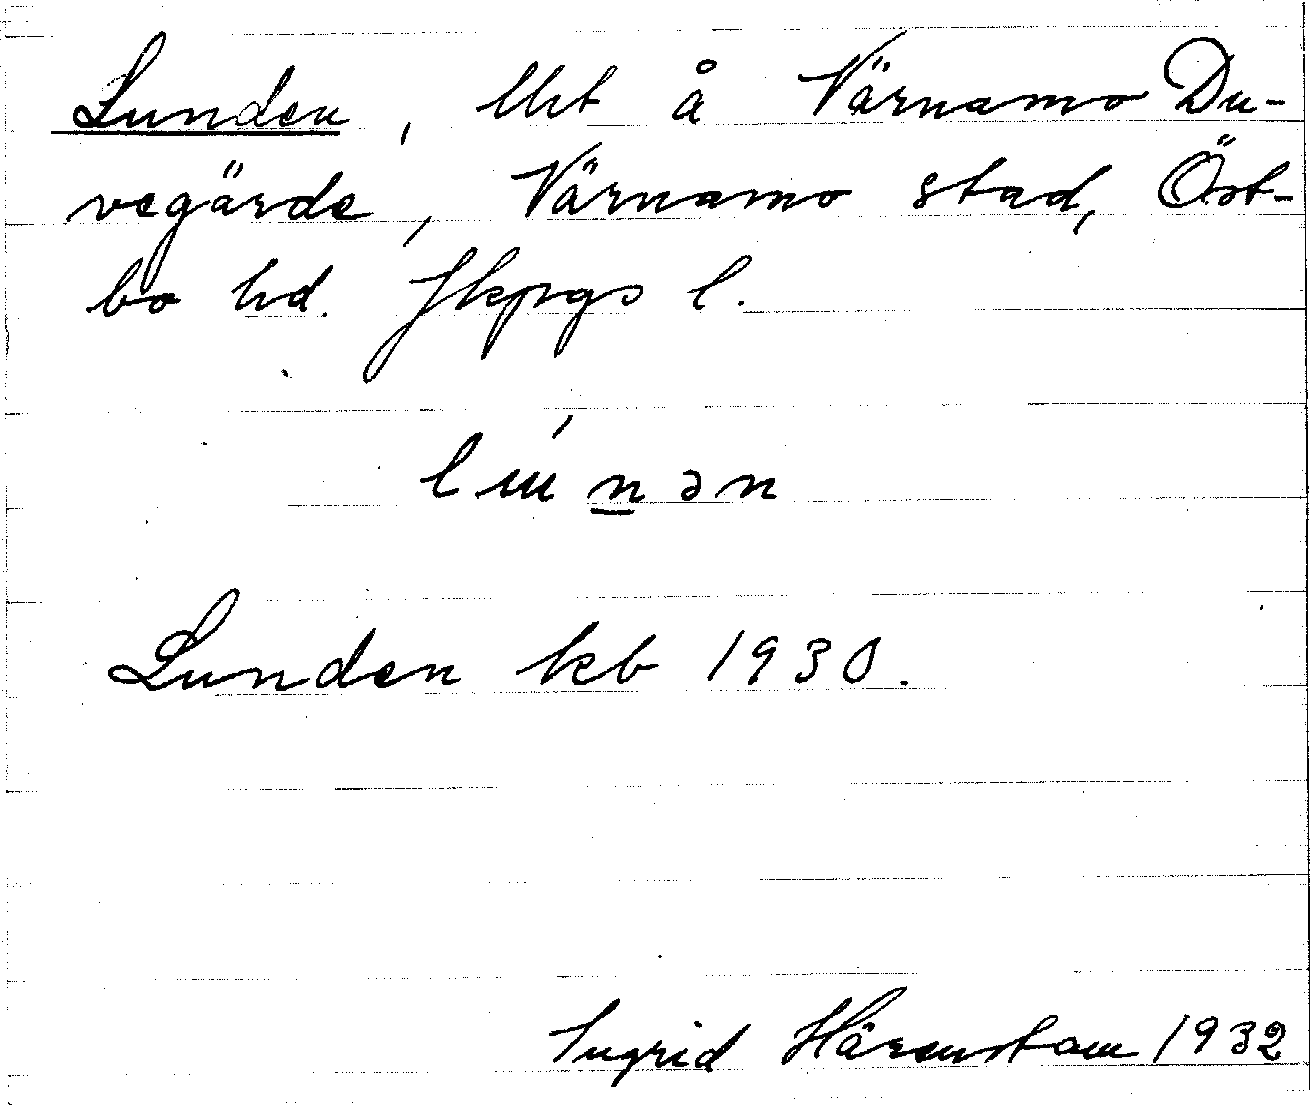 Lunden, lht å Värnamo Du-
vegärde, Värnamo stad, Öst-
bo hd. Jkpgs l.
lɯ́nən
Lunden kb 1930.
Ingrid Härenstam 1932